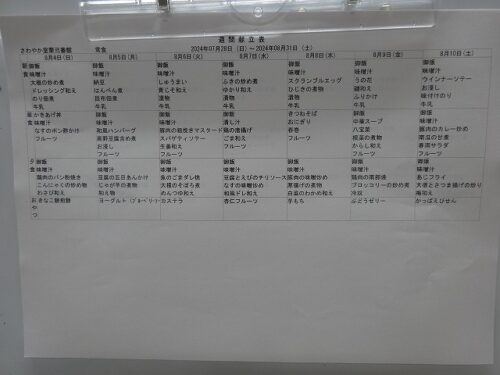 週間献立表
さわやか室蘭三番館 常食 2024年07月28日 (日) ～2024年08月31日 (土)
8月4日(日) 8月5日(月) 8月6日(火) 8月7日(水) 8月8日(木) 8月9日(金) 8月10日(土)
朝 御飯 御飯 御飯 御飯 御飯 御飯 御飯
食 味噌汁 味噌汁 味噌汁 味噌汁 味噌汁 味噌汁 味噌汁
大根の炒め煮 納豆 しゅうまい ふきの炒め煮 スクランブルエッグ うの花 ウインナーソテー
ドレッシング和え はんぺん煮 青じそ和え ゆかり和え ひじきの煮物 和え お浸し
のり佃煮 昆布佃煮 漬物 漬物 漬物 ふりかけ 味付けのり
牛乳 牛乳 牛乳 牛乳 牛乳 牛乳 牛乳
昼 かきあげ丼 御飯 御飯 御飯 きつねそば 御飯 御飯
食 味噌汁 味噌汁 味噌汁 すまし汁 おにぎり 中華スープ 味噌汁
なすのポン酢かけ 和風ハンバーグ 豚肉の粒焼きマスタード 鶏の唐揚げ 春巻 八宝菜 豚肉のカレー炒め
フルーツ 高野豆腐含め煮 スパゲティソテー ごま和え フルーツ 根菜の煮物 南瓜の甘煮
お浸し 生姜和え フルーツ からし和え 春雨サラダ
フルーツ フルーツ フルーツ フルーツ
夕 御飯 御飯 御飯 御飯 御飯 御飯 御飯
食 味噌汁 味噌汁 味噌汁 味噌汁 味噌汁 味噌汁 味噌汁
鶏肉のパン粉焼き 豆腐の五目あんかけ 魚のごまダレ焼 豆腐とえびのチリソース 豚肉の味噌炒め 鶏肉の南部焼 あじフライ
こんにゃくの炒め物 じゃが芋の煮物 大根のそぼろ煮 なすの味噌炒め 厚揚げの煮物 ブロッコリーの炒め煮 大根とさつま揚げの炒り
わさび和え 和え物 めんつゆ和え 和風ドレ和え 白菜のわかめ和え 冷奴 梅和え
おやつ きなこ饅頭 ヨーグルト(ブルーベリー) カステラ 杏仁フルーツ 芋もち ぶどうゼリー かっぱえびせん